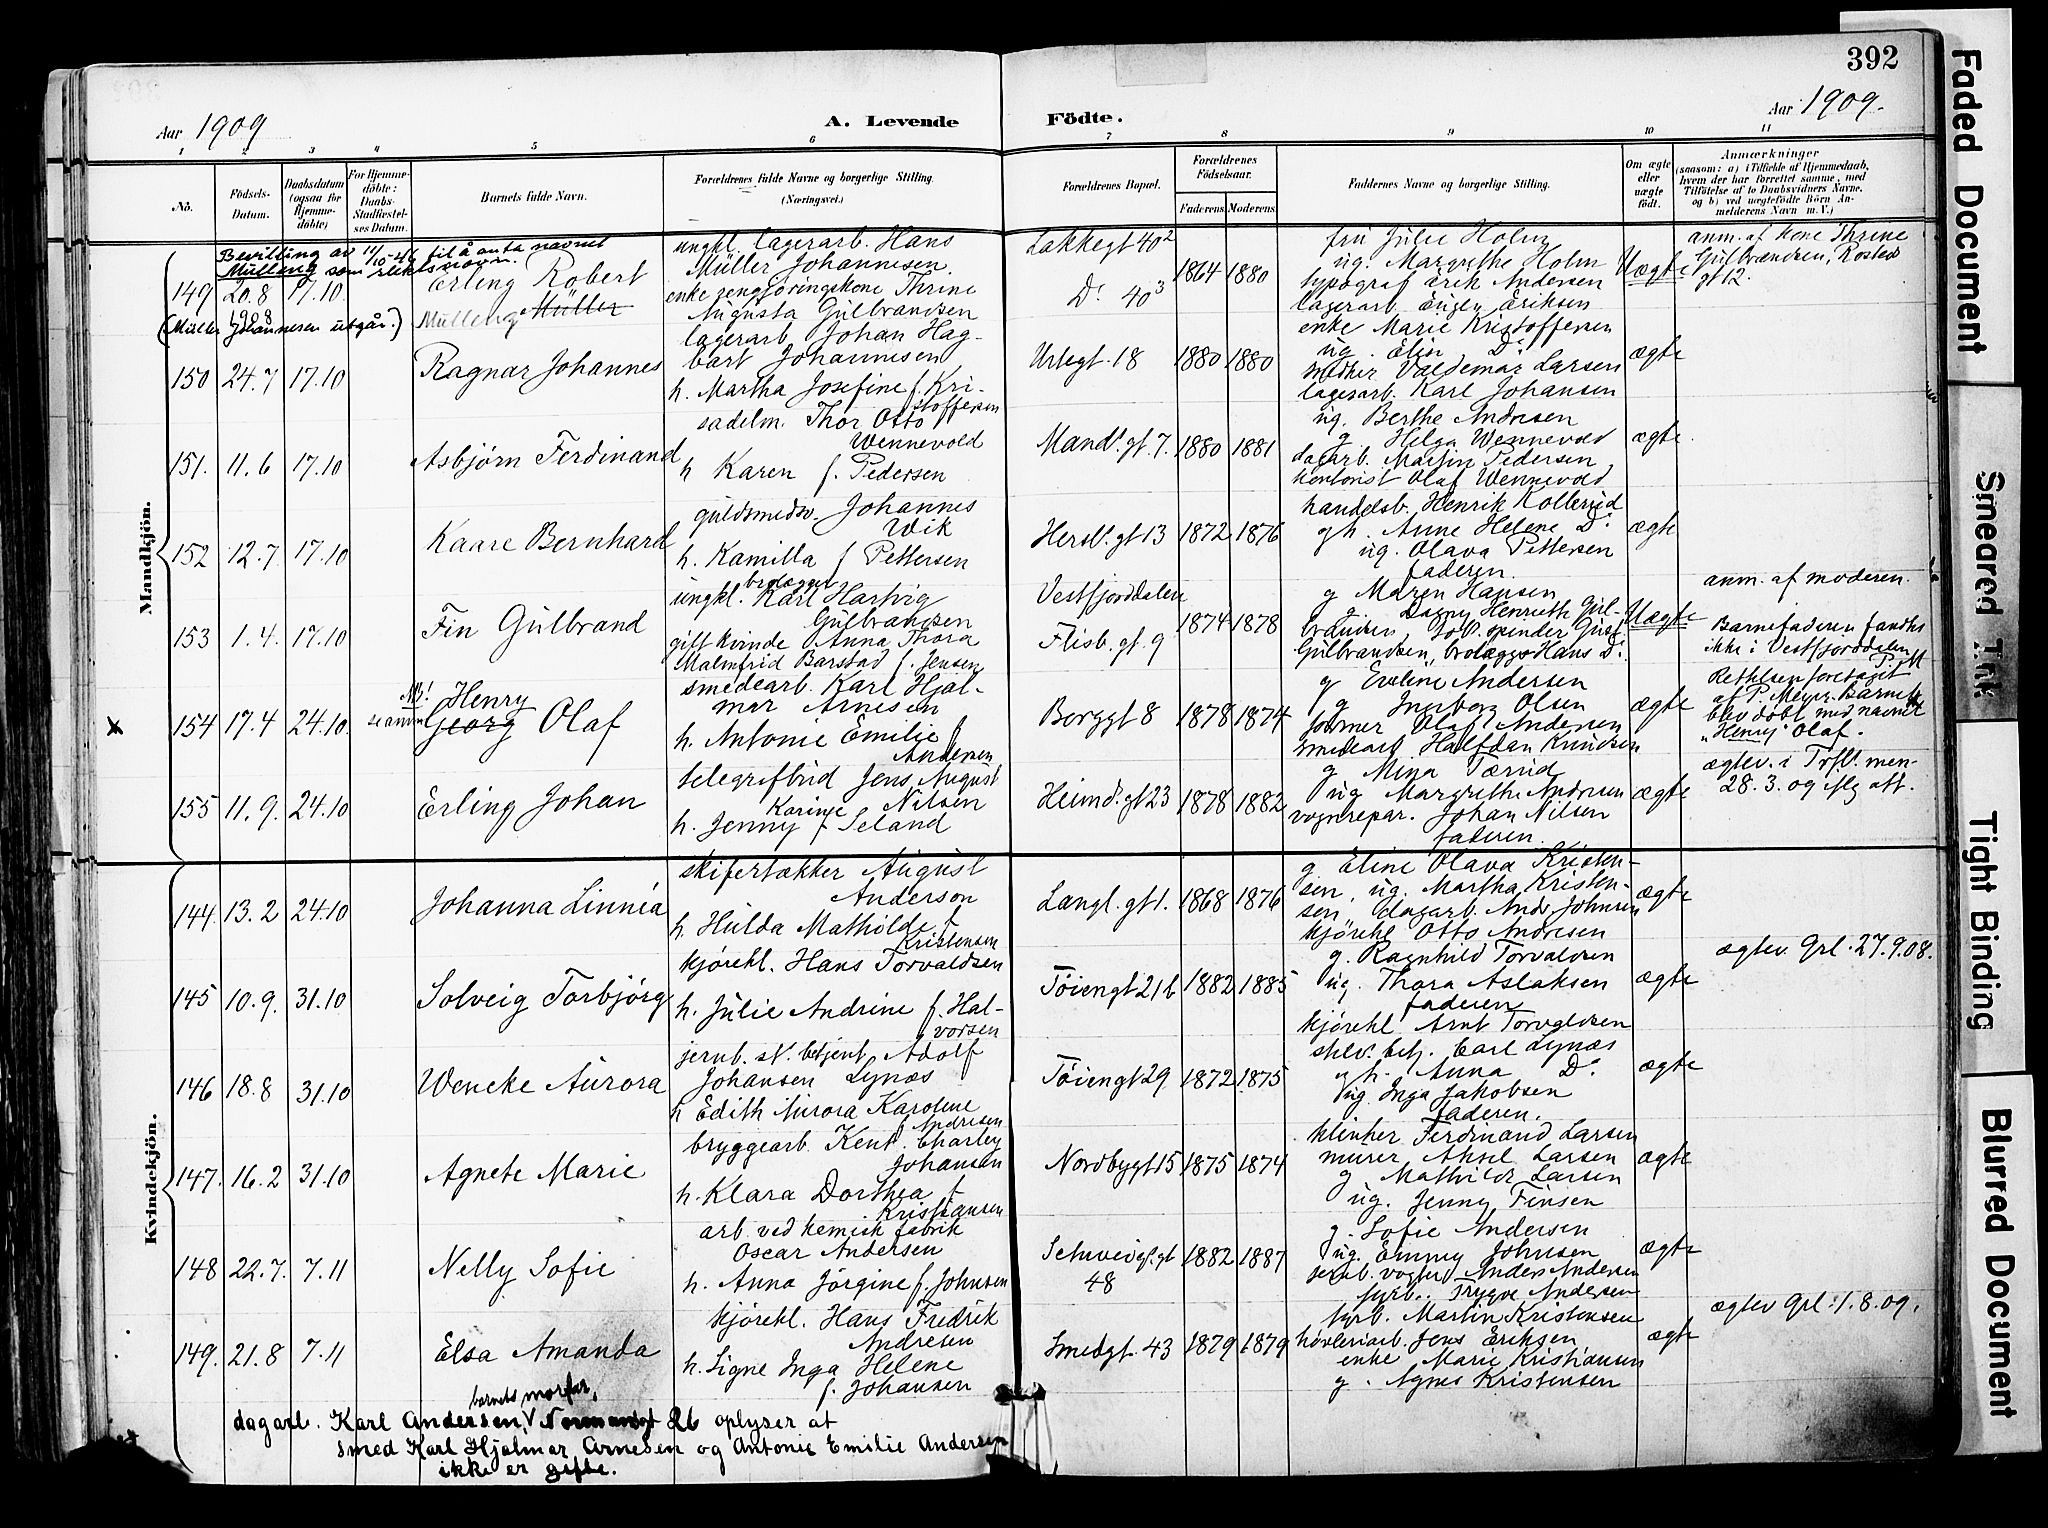 392
Aar 1909
A. Levende
Födte.
Aar 1909.
1 2 3 4 5 6 7 8 9 10 11
No.
Födsels-Datum.
Daabsdatum (ogsaa for Hjemme-döbte)
For Hjemme-döbte: Daabs-Stadfæstel-ses Datum.
Barnets fulde Navn.
Forældrenes fulde Navne og borgerlige Stilling.
(Næringsvei.)
Forældrenes Bopæl.
Forældrenes Födselsaar.
Faderens. Moderens.
Faddernes Navne og borgerlige Stilling.
Om ægte eller uægte födt.
Anmærkninger
(saasom: a) i Tilfælde af Hjemmedaab, hvem der har forrettet samme, med Tilföielse af to Daabsvidners Navne, og b) ved uægtefödte Börn An-melderens Navn m. V.)
Mandkjön.
Bevilling av 11/10-44 til å anta navnet
Mülleng som slektsnavn.
149 20.8 1908 17.10 Erling Robert
Mülleng Müller
(Müller Johannesen utgår.)
ungkl. lagerarb. Hans
Müller Johannesen.
enke rengjöringskone Thrine
Augusta Gulbrandsen
Lakkegt 40²
Dº 40³
1864 1880
fru Julie Holm
ug. Margrethe Holm
typograf Erik Andersen
lagerarb. Eugen Eriksen
Uægte
anm. af kone Thrine
Gulbrandsen, Rosteds
gt 12.
150 24.7 17.10 Ragnar Johannes
lagerarb. Johan Hag-
bart Johannesen
h. Martha Josefine f. Kri-
stoffersen
Urtegt. 18 1880 1880
enke Marie Kristoffersen
ug. Elin Dº
snedker Valdemar Larsen
lagerarb. Karl Johansen
ægte
151. 11.6 17.10 Asbjørn Ferdinand
sadelm. Thor Otto
Wennevold
h Karen f. Pedersen
Mandl. gt. 7. 1880 1881
ug. Berthe Andresen
g. Helga Wennevold
dagarb. Martin Pedersen
kontorist Olaf Wennevold
ægte.
152 12.7 17.10 Kaare Bernhard
guldsmedsv. Johannes
Wik
h. Kamilla f Pettersen
Hersl. gt 13 1872 1876
handelsb. Henrik Kollerud
gh. Anne Helene Dº
ug. Olava Pettersen
faderen.
ægte
153 1.4. 17.10 Fin Gulbrand
ungkl. brolægger Karl Hartvig
Gulbrandsen
gift kvinde Anna Thora
Malmfrid Barstad f. Jensen
Vestfjorddalen
Flisb. gt. 9
1874 1878
g Maren Hansen
g. Dagny Henriette Gul-
brandsen, Tob. spinder Gust.
Gulbrandsen, brolægger Hans Dº.
Uægte
anm. af moderen.
Barnefaderen fandtes
ikke i Vestfjorddalen
P. M
154 17.4 24.10 NB! Henry
se anm Georg Olaf
smedearb. Karl Hjal-
mar Arnesen
h. Antonie Emilie f
Andersen
Borggt 8 1878 1874
g Eveline Andersen
g Ingeborg Olsen
former Olaf Andersen
smedearb Halfdan Knudsen
ægte
Rettelsen foretaget
af P. Meyer. Barnet
blev döbt med navnet
"Henry" Olaf.
155 11.9. 24.10 Erling Johan
telegrafbud Jens August
Nilsen
h. Jenny Karine f Seland
Heimd. gt 23 1878 1882
g Mina Tærud
ug Margrethe Andresen
vognrepar. Johan Nilsen
faderen.
ægte
ægtev. i Trfl. men-
28.3. og iflg att.
Kvindekjön.
144. 13.2 24.10 Johanna Linnéa
skifertækker August
Anderson
h. Hulda Mathilde f
Kristensen
Langl. gt 1. 1868 1876
g. Eline Olava Kristen-
sen, ug. Martha Kristen-
sen, dagarb. Andr. Johnsen
kjörekl Otto Andresen
ægte
145 10.9. 31.10 Solveig Torbjörg
kjörekl. Hans Torvaldsen
h. Julie Andrine f. Hal-
vorsen
Töiengt 21b 1882 1885
g. Ragnhild Torvaldsen
ug. Thora Aslaksen
faderen
kjörekl Arnt Torvaldsen
ægte
ægtev Grl. 27.9.08.
146 18.8 31.10 Wencke Aurora
jernb. st. betjent Adolf
Johansen Lynæs
h Edith Aurora Karoline
f Andresen
Töiengt 29 1872 1875
betj. Carl Lynæs
gh. Anna Dº.
ug. Inga Jakobsen
faderen.
ægte
147. 16.2 31.10 Agnete Marie
bryggearb. Kent Charley
Johansen
h. Klara Dorthea f
Kristiansen
Nordbygt 15 1875 1874
klinker Ferdinand Larsen
murer Aksel Larsen
g Mathilde Larsen
ug. Jenny Finsen
ægte
148 22.7. 7.11 Nelly Sofie
arb. ved kemisk fabrik
Oscar Andersen
h. Anna Jörgine f. Johnsen
Schweigs. gt
48
1882 1887
g. Sofie Andersen
ug. Emmy Johnsen
jernb. vogter Anders Andersen
fyrb. Trygve Andersen
ægte
149. 21.8 7.11 Elsa Amanda
kjörekl. Hans Fredrik
Andresen
h. Signe Inga Helene
f. Johansen
Smedgt. 43 1879 1879
fyrb. Martin Kristensen
hövleriarb. Jens Eriksen
enke Marie Kristiansen
g. Agnes Kristensen
ægte
ægtev Grl. 1.8.09.
barnets morfar,
dagarb. Karl Andersen, Normannsgt 26 oplyser at
smed Karl Hjalmar Arnesen og Antonie Emilie Andersen
ikke er gifte.
Faded Document
Smeared Ink
Tight Binding
Blurred Document